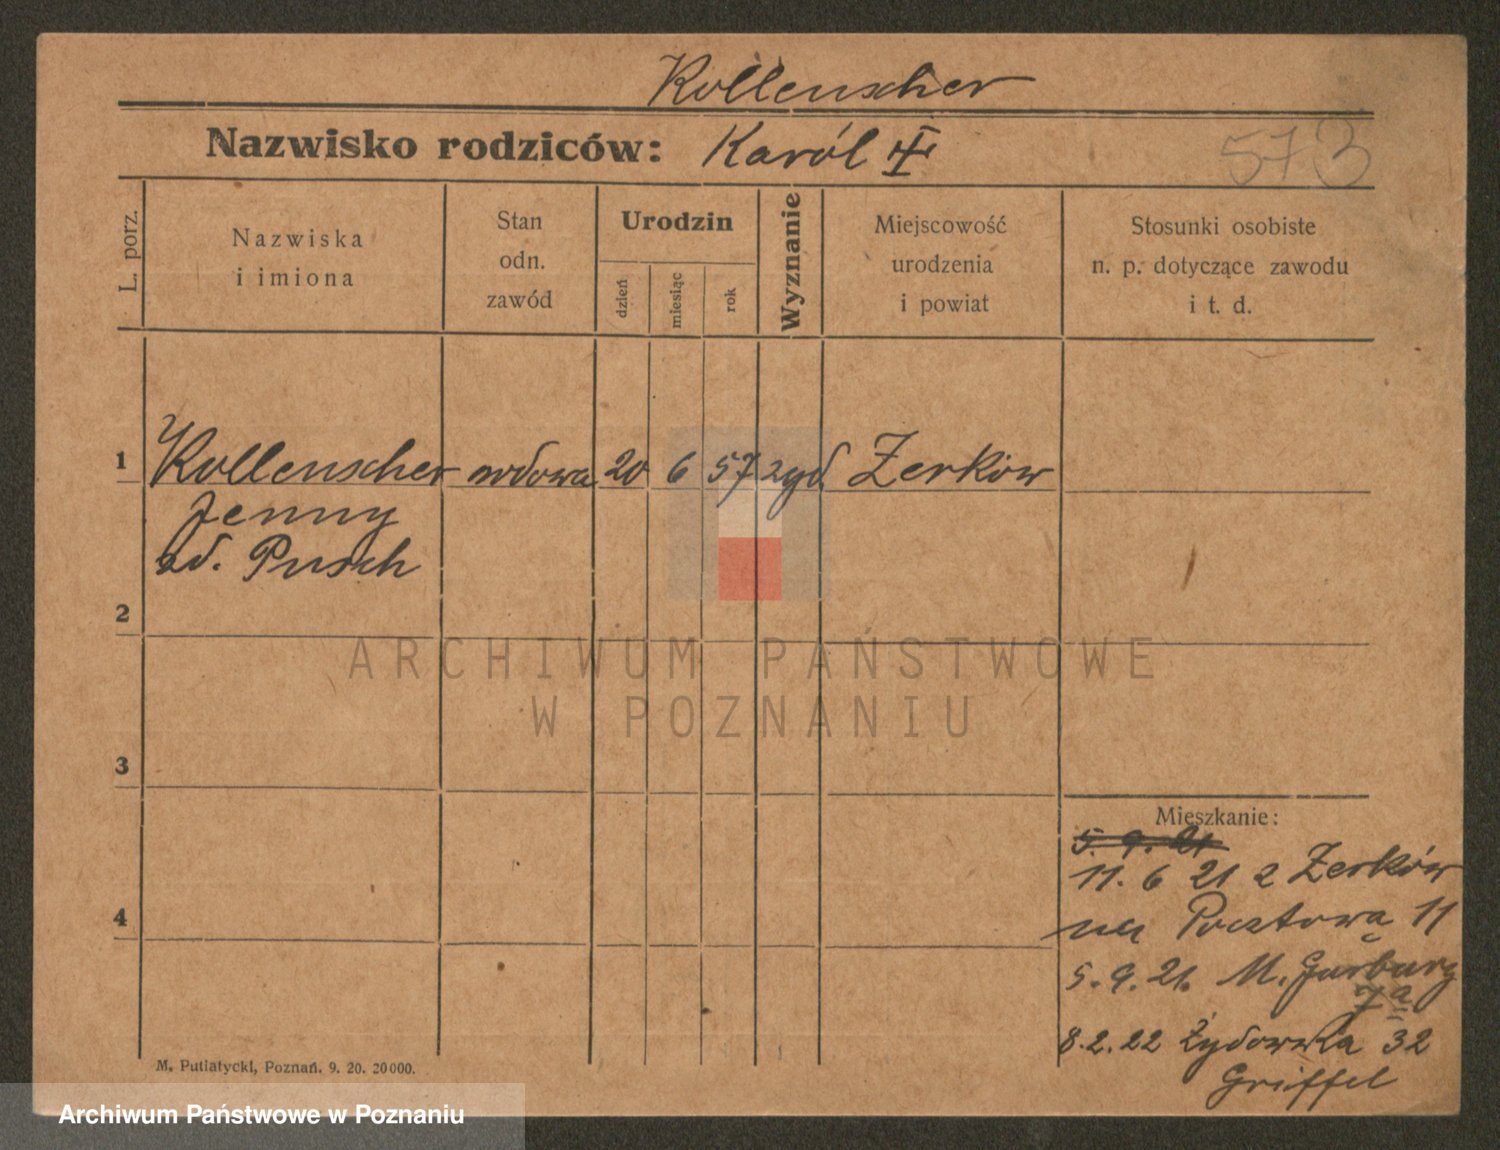 Kollenscher
Nazwisko rodziców: Karól
573
L. porz.
Nazwiska
i imiona
Stan
odn.
zawód
Urodzin
dzień
miesiąc
rok
Wyznanie
Miejscowość
urodzenia
i powiat
Stosunki osobiste
n. p. dotyczące zawodu
i t. d.
1 Kollenscher wdowa 20 6 57 żyd Żerków
Jenny
zd. Pusch
2
3
4
Mieszkanie:
5. 9. 21
11. 6 21 z Żerków
na Pocztową 11
5. 9. 21. M. Garbary
7a
8. 2. 22 Żydowska 32
Griffel
M. Putiatycki, Poznań. 9. 20. 20000.
ARCHIWUM PAŃSTWOWE
W POZNANIU
Archiwum Państwowe w Poznaniu